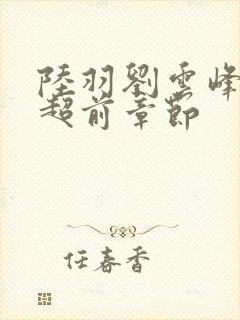 陸羽劉雲峰
超前章節
任春香